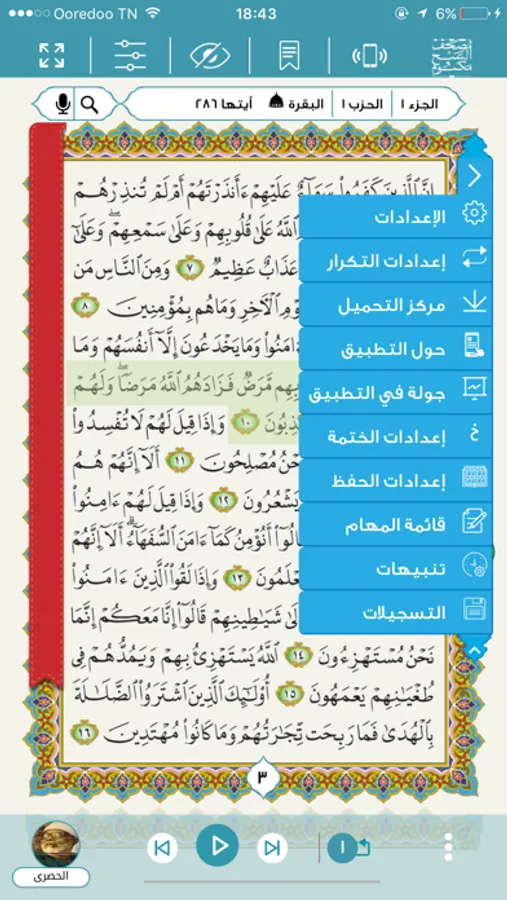 Ooredoo TN 18:43 6%
الجزء ١ الحزب ١ البقرة أيتها ٢٨٦
إِنَّ ٱلَّذِينَ كَفَرُوا۟ سَوَآءٌ عَلَيْهِمْ ءَأَنذَرْتَهُمْ أَمْ لَمْ تُنذِرْهُمْ
ٱللَّهُ عَلَىٰ قُلُوبِهِمْ وَعَلَىٰ سَمْعِهِمْ ۖ وَعَلَىٰٓ
عَذَابٌ عَظِيمٌ ٧ وَمِنَ ٱلنَّاسِ مَن
ٱلْـَٔاخِرِ وَمَا هُم بِمُؤْمِنِينَ ٨
ءَامَنُوا۟ وَمَا يَخْدَعُونَ إِلَّآ أَنفُسَهُمْ وَمَا
مَّرَضٌ فَزَادَهُمُ ٱللَّهُ مَرَضًا ۖ وَلَهُمْ
١٠ وَإِذَا قِيلَ لَهُمْ لَا تُفْسِدُوا۟
مُصْلِحُونَ ١١ أَلَآ إِنَّهُمْ هُمُ
يَشْعُرُونَ ١٢ وَإِذَا قِيلَ لَهُمْ ءَامِنُوا۟
أَنُؤْمِنُ كَمَآ ءَامَنَ ٱلسُّفَهَآءُ ۗ أَلَآ إِنَّهُمْ
١٣ وَإِذَا لَقُوا۟ ٱلَّذِينَ ءَامَنُوا۟
شَيَـٰطِينِهِمْ قَالُوٓا۟ إِنَّا مَعَكُمْ إِنَّمَا
نَحْنُ مُسْتَهْزِءُونَ ١٤ ٱللَّهُ يَسْتَهْزِئُ بِهِمْ وَيَمُدُّهُمْ فِى
طُغْيَـٰنِهِمْ يَعْمَهُونَ ١٥ أُو۟لَـٰٓئِكَ ٱلَّذِينَ ٱشْتَرَوُا۟ ٱلضَّلَـٰلَةَ
بِٱلْهُدَىٰ فَمَا رَبِحَت تِّجَـٰرَتُهُمْ وَمَا كَانُوا۟ مُهْتَدِينَ ١٦
الإعدادات
إعدادات التكرار
مركز التحميل
حول التطبيق
جولة في التطبيق
إعدادات الختمة
إعدادات الحفظ
قائمة المهام
تنبيهات
التسجيلات
٣
١
الحصرى